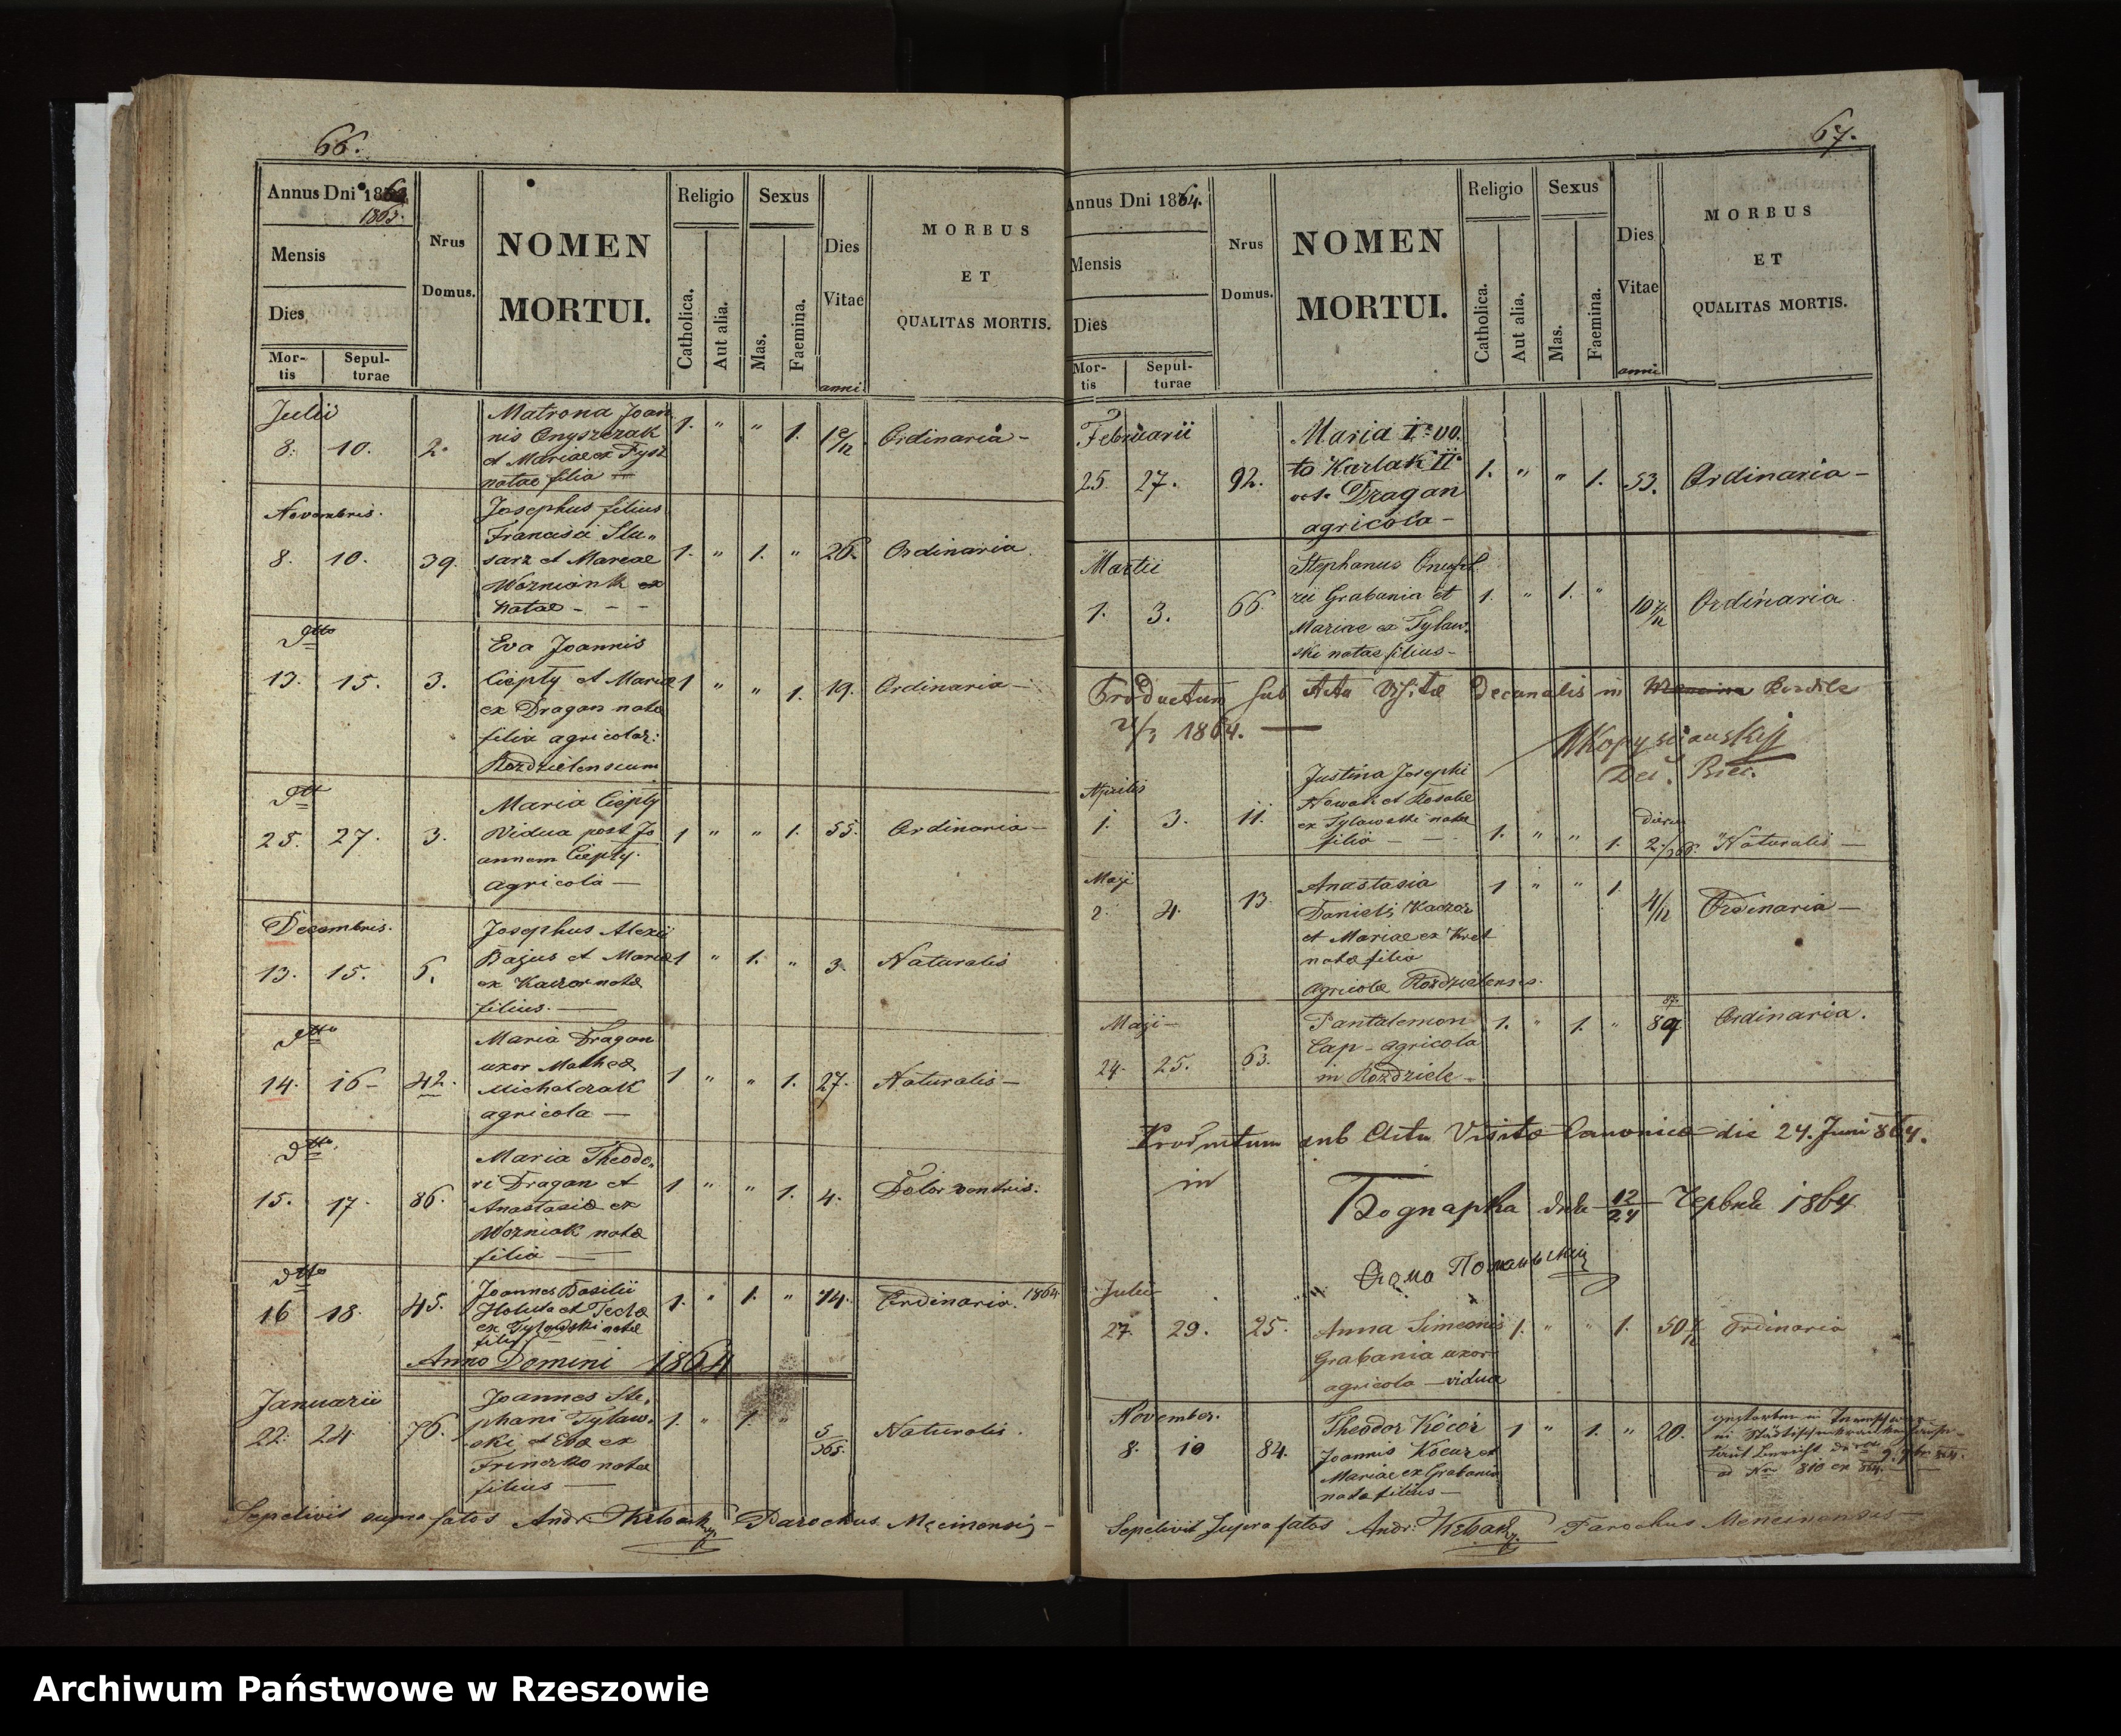 66.
Annus Dni 186
1863.
Mensis
Dies
Mor-
tis
Sepul-
turae
Nrus
Domus.
NOMEN
MORTUI.
Religio
Catholica.
Aut alia.
Sexus
Mas.
Faemina.
Dies
Vitae
anni
MORBUS
ET
QUALITAS MORTIS.
Julii
8. 10. 2.
Matrona Joan
nis Onyszczak
et Mariae ex Fysz
natae filia
1. " " 1. Ordinaria -
Novembris.
8. 10. 39.
Josephus filius
Francisci Slu„
sarz et Mariae
Wozniank ex
natae - - -
1. " 1. " 26. Ordinaria.
dtto
13. 15. 3.
Eva Joannis
Ciepty et Mariae
ex Dragan natae
filia agricolar:
Rozdzielensium
1 " " 1. 19. Ordinaria -
dtto
25. 27. 3.
Maria Ciepty
Vidua post Jo
annem Ciepty.
agricola —
1 " " 1. 55. Ordinaria -
Decembris.
13. 15. 5.
Josephus Alexii
Bajus et Mariae
ex Kaczor natae
filius. —
1 " 1. " 3. Naturalis
dtto
14. 16 - 42.
Maria Dragan
uxor Mathei
Michalczak
agricola —
1 " " 1. 27. Naturalis —
dtto
15. 17. 86.
Maria Theodo„
ri Dragan et
Anastasiae ex
Wozniak natae
filia —
1 " " 1. 4. Dolor ventris.
dtto
16 18. 45.
Joannes Basilii
Holuta et Teclae
ex Tylawski natae
filius
1. " 1. " 74. Ordinaria. 1864
Anno Domini 1864
Januarii
22. 24. 76.
Joannes Ste„
phani Tylaw„
ski et Evae ex
natae
filius —
1. " 1. " 5/365. Naturalis.
Sepelivit supra fatos Andr: Parochus Męcinensis -
67.
Annus Dni 1864.
Mensis
Dies
Mor-
tis
Sepul-
turae
Nrus
Domus.
NOMEN
MORTUI.
Religio
Catholica.
Aut alia.
Sexus
Mas.
Faemina.
Dies
Vitae
anni
MORBUS
ET
QUALITAS MORTIS.
Februarii
25. 27. 92.
Maria I° vo.
to Karlak II°
vot. Dragan
agricola -
1. " " 1. 53. Ordinaria -
Martii
1. 3. 66.
Stephanus Onuf
rii Grabania et
Mariae ex Tylaw„
ski natae filius -
1. " 1. " 10 7/12 Ordinaria.
Productum sub Actu Visitae Decanalis in Rozdile
1864. —
Dec. Biec.
Aprilis
1. 3. 11.
Justina Josephi
Nowak et Rosaliae
ex Tylawski natae
filia —
1. " " 1. Naturalis —
Maji
2. 4. 13.
Anastasia
Danieli Kaczor
et Mariae ex Kret
natae filia
agricolae Rozdzielensis.
1 " " 1. 4/12 Ordinaria —
Maji -
24. 25. 63.
Pantalemon
Cap - agricola
in Rozdziele -
1. " 1. " 89 Ordinaria.
Productum sub Actu Visitae Canonicae die 24. Juni 864.
in
Боднарка дня 12/24 Червця 1864
Julii
27. 29. 25.
Anna Simeonis
Grabania uxor
agricola — vidua
1. " " 1. 50 Ordinaria
November.
8. 10 84.
Theodor Kócór
Joannis Kocur et
Mariae ex Grabania
nata filius -
1 " 1. " 20.
gestorben in
im Städtischen krankenhause
laut Bericht
ad Nro 810 ex 864.
Sepelivit supra fatos Andr: Parochus Mencinensis —
Archiwum Państwowe w Rzeszowie